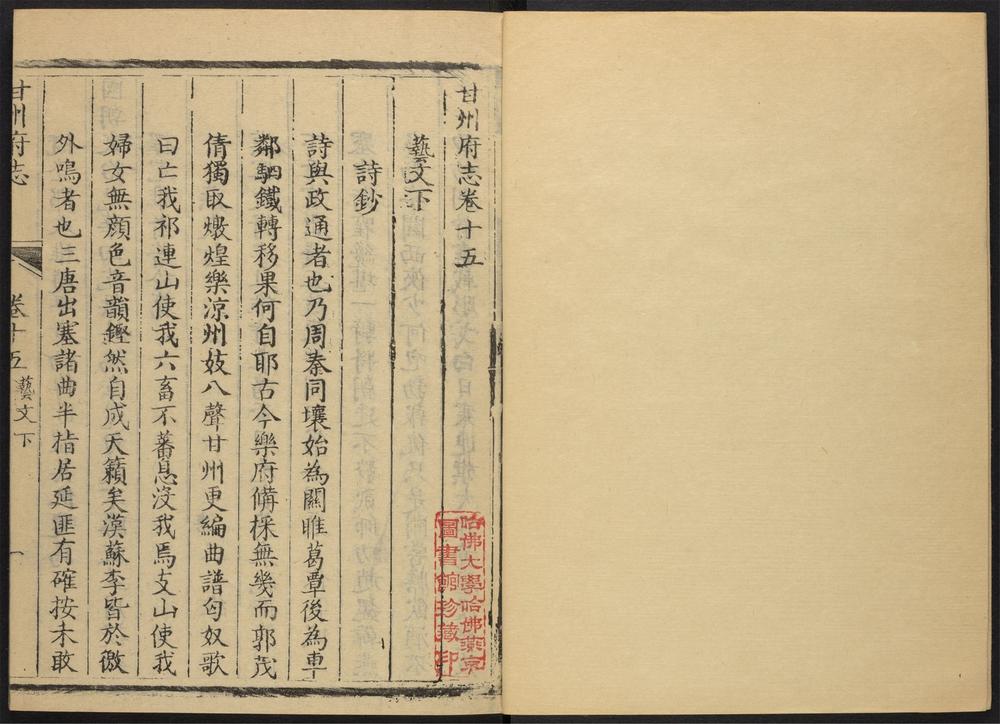 甘州府志卷十五
藝文下
詩鈔
詩與政通者也乃周秦同壤始為關雎葛覃後為車
鄰駟鐵轉移果何自耶古今樂府備採無幾而郭茂
倩獨取燉煌樂涼州妓八聲甘州更編曲譜匈奴歌
曰亡我祁連山使我六畜不蕃息沒我焉支山使我
婦女無顔色音韻鏗然自成天籟矣漢蘇李皆於徼
外鳴者也三唐出塞諸曲半指居延匪有確按未敢
甘州府志
卷十五 藝文下
一
哈佛大學哈佛燕京
圖書館珍藏印